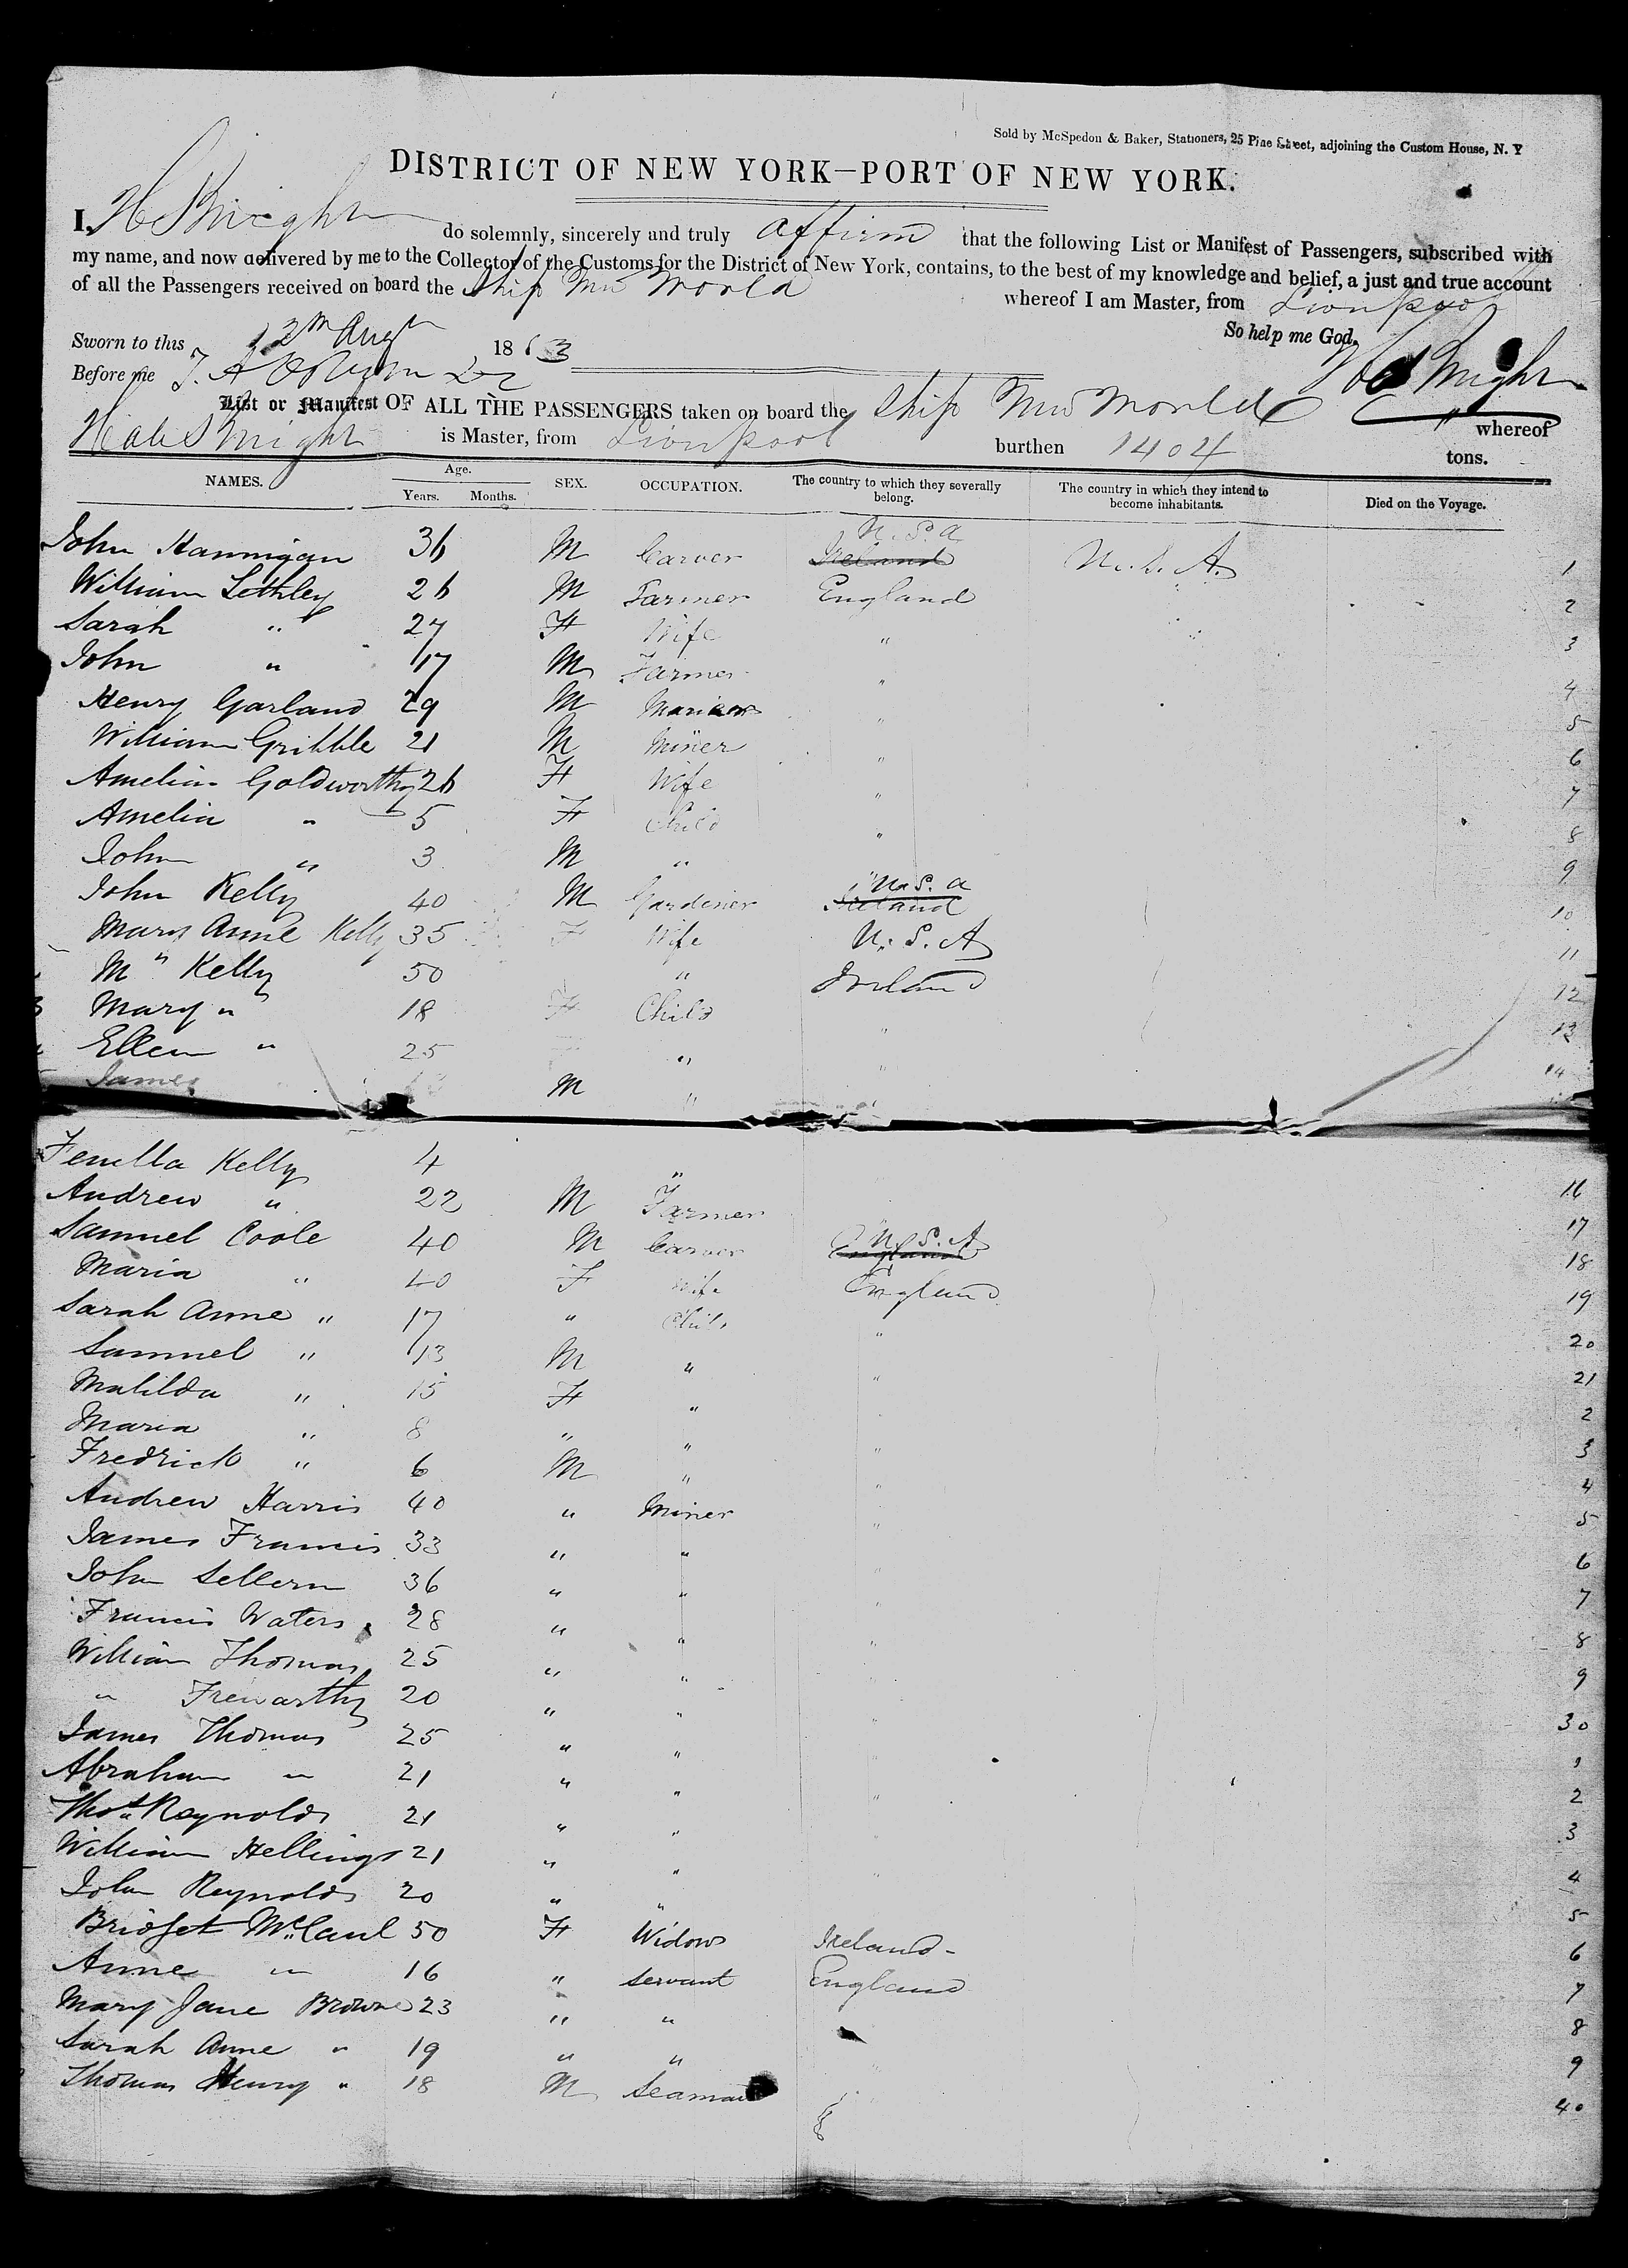 Sold by McSpedon & Baker, Stationers, 25 Pine Street, adjoining the Custom House, N. Y
DISTRICT OF NEW YORK—PORT OF NEW YORK.
I, H Knight do solemnly, sincerely and truly affirm that the following List or Manifest of Passengers, subscribed with
my name, and now delivered by me to the Collector of the Customs for the District of New York, contains, to the best of my knowledge and belief, a just and true account
of all the Passengers received on board the Ship New World whereof I am Master, from Liverpool
So help me God.
Sworn to this 12th Augt 1863
Before me
Knight
List or Manifest OF ALL THE PASSENGERS taken on board the Ship New World whereof
Knight is Master, from Liverpool burthen 1404 tons.
NAMES. Age. Years. Months. SEX. OCCUPATION. The country to which they severally belong. The country in which they intend to become inhabitants. Died on the Voyage.
John Hannigan 36 M Carver Ireland U.S.A U.S.A. 1
William Lethley 26 M Farmer England 2
Sarah " 27 F Wife " 3
John " 17 M Farmer " 4
Henry Garland 29 M " 5
William Gribble 21 M Miner " 6
Amelia Goldworthy 26 F Wife " 7
Amelia " 5 F Child " 8
John " 3 M " 9
John Kelly 40 M Gardener Ireland U.S.A 10
Mary Anne Kelly 35 F Wife U.S.A 11
M " Kelly 50 " Ireland 12
Mary " 18 F Child " 13
Ellen " 25 " " 14
James M " "
Fenella Kelly 4 " 16
Andrew " 22 M Farmer 17
Samuel Coole 40 M Carver England U.S.A 18
Maria " 40 F Wife England 19
Sarah Anne " 17 " Child " 20
Samuel " 13 M " " 21
Matilda " 15 F " 2
Maria " 8 " " " 3
Fredrick " 6 M " " 4
Andrew Harris 40 " Miner " 5
James Francis 33 " " " 6
John Sellern 36 " " " 7
Francis Waters 28 " " " 8
William Thomas 25 " " " 9
" Trewarthy 20 " " " 30
James Thomas 25 " " " 1
Abraham " 21 " " " 2
Thos Reynolds 21 " " " 3
William Hellings 21 " " " 4
John Reynolds 20 " " 5
Bridget McCaul 50 F Widow Ireland 6
Anne " 16 " Servant England 7
Mary Jane Browne 23 " " 8
Sarah Anne " 19 " " 9
Thomas Henry " 18 M Seaman 40